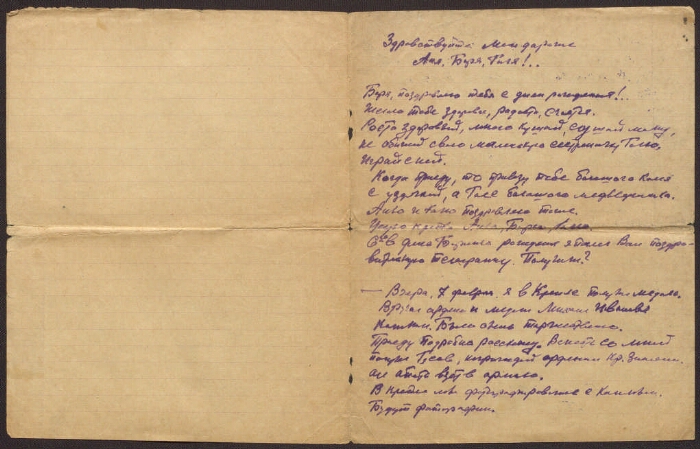 Здравствуйте мои дорогие
Аня, Боря, Галя!..
Боря, поздравляю тебя с днем рождения!..
Желаю тебе здоровья, радости, счастья.
Расти здоровый, много кушай, слушай маму,
не обижай свою маленькую сестричку Галю,
играй с ней.
Когда приеду, то привезу тебе большого коня
с уздечкой, а Гале большого медвежонка.
Аню и Галю поздравляю тоже.
Аня, Боря, Галя.
в день Бориного рождения я дал Вам поздра-
вительную телеграмму. Получили?
— Вчера, 7 февраля я в Кремле получил медаль.
Вручал ордена и медали Михаил Иванович
Калинин. Было очень торжественно.
Приеду подробно расскажу. Вместе со мной
получал Гусев, награжденный орденом Кр. Знамени.
он опять взят в армию.
В Кремле мы фотографировались с Калининым.
Будут фотографии.